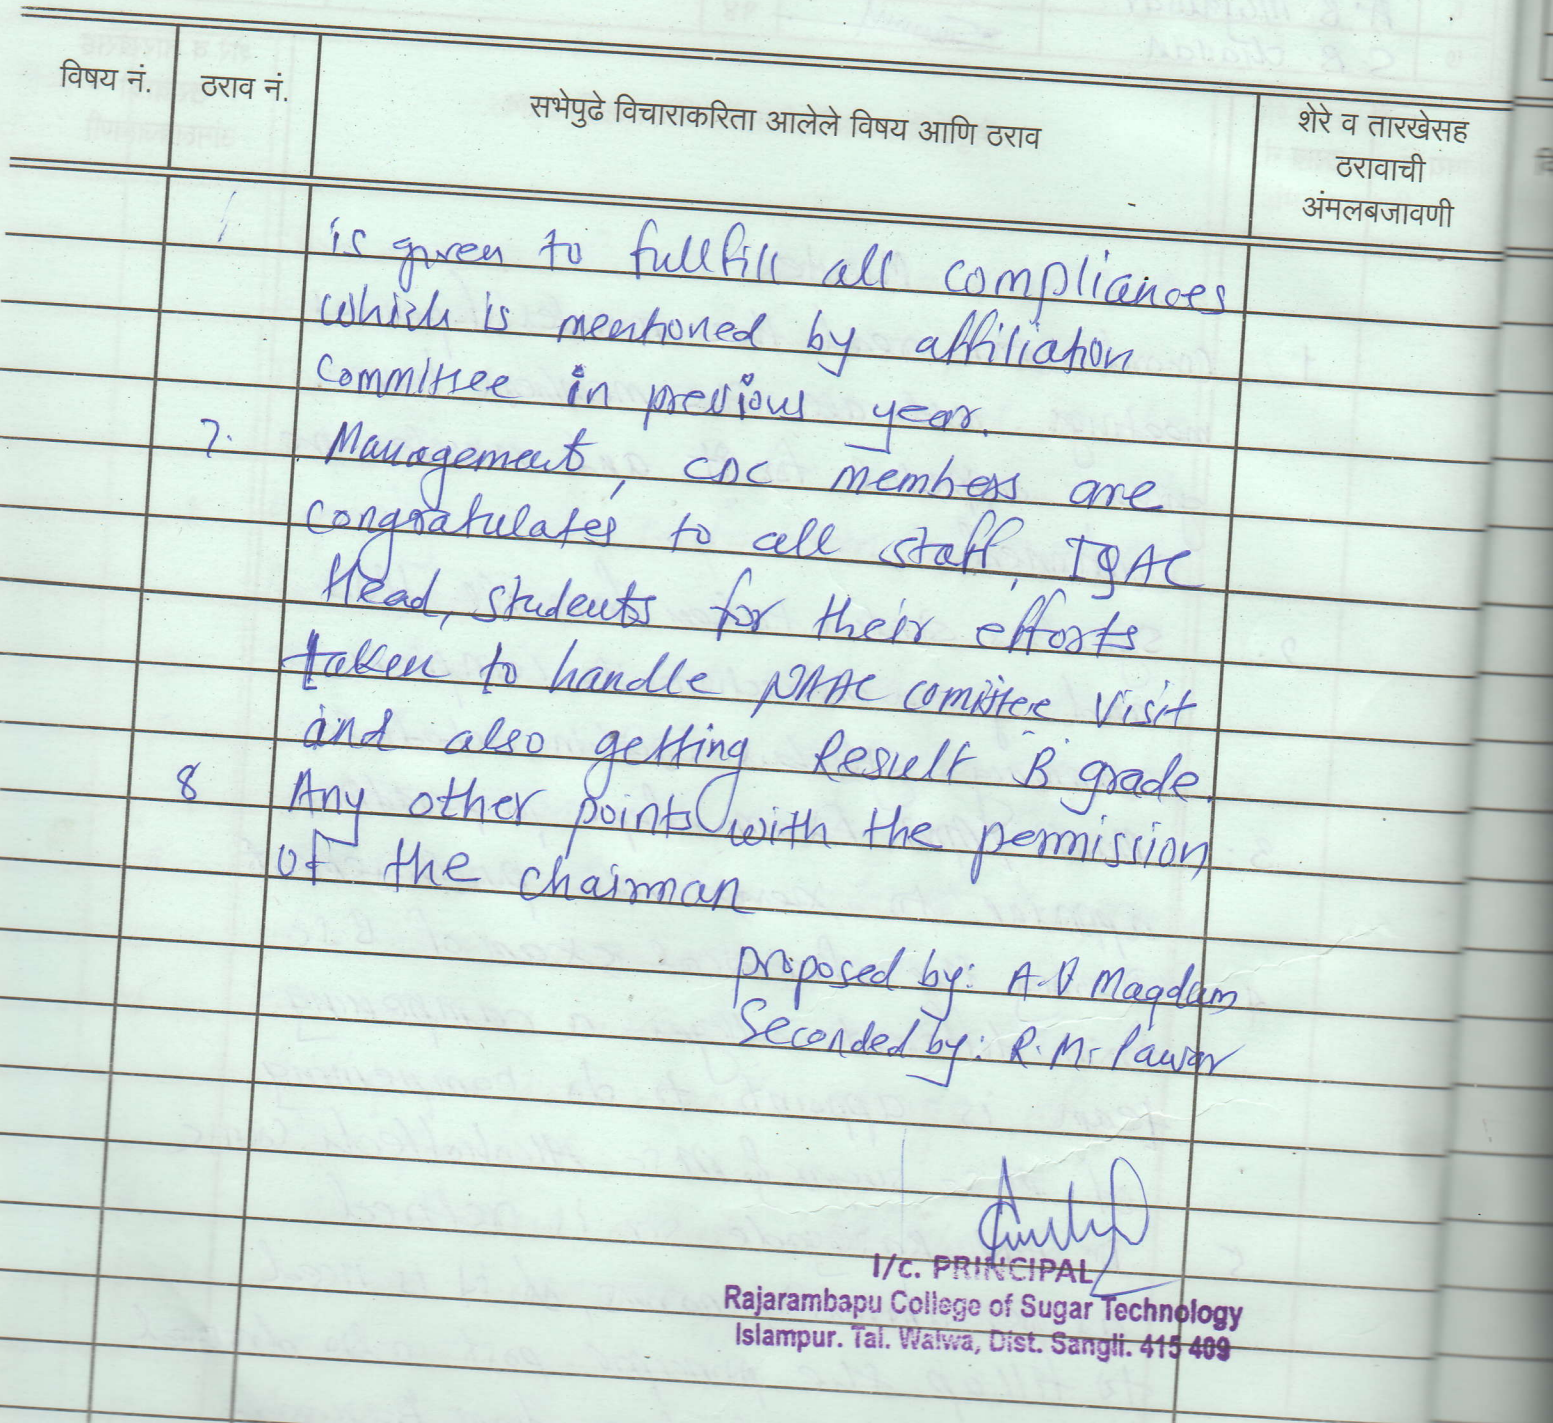 विषय नं.
ठराव नं.
सभेपुढे विचाराकरिता आलेले विषय आणि ठराव
शेरे व तारखेसह
ठरावाची
अंमलबजावणी
is given to fullfill all compliances
which is mentioned by affiliation
committee in previous year.
7. Management, CDC members are
congratulates to all staff, IQAC
Head, students for their efforts
taken to handle NAAC comittee visit
and also getting Result B grade.
8 Any other points with the permission
of the chairman
proposed by: A.D Magdum
Seconded by: R.M. Pawar
I/c. PRINCIPAL
Rajarambapu College of Sugar Technology
Islampur. Tal. Walwa, Dist. Sangli. 415 409